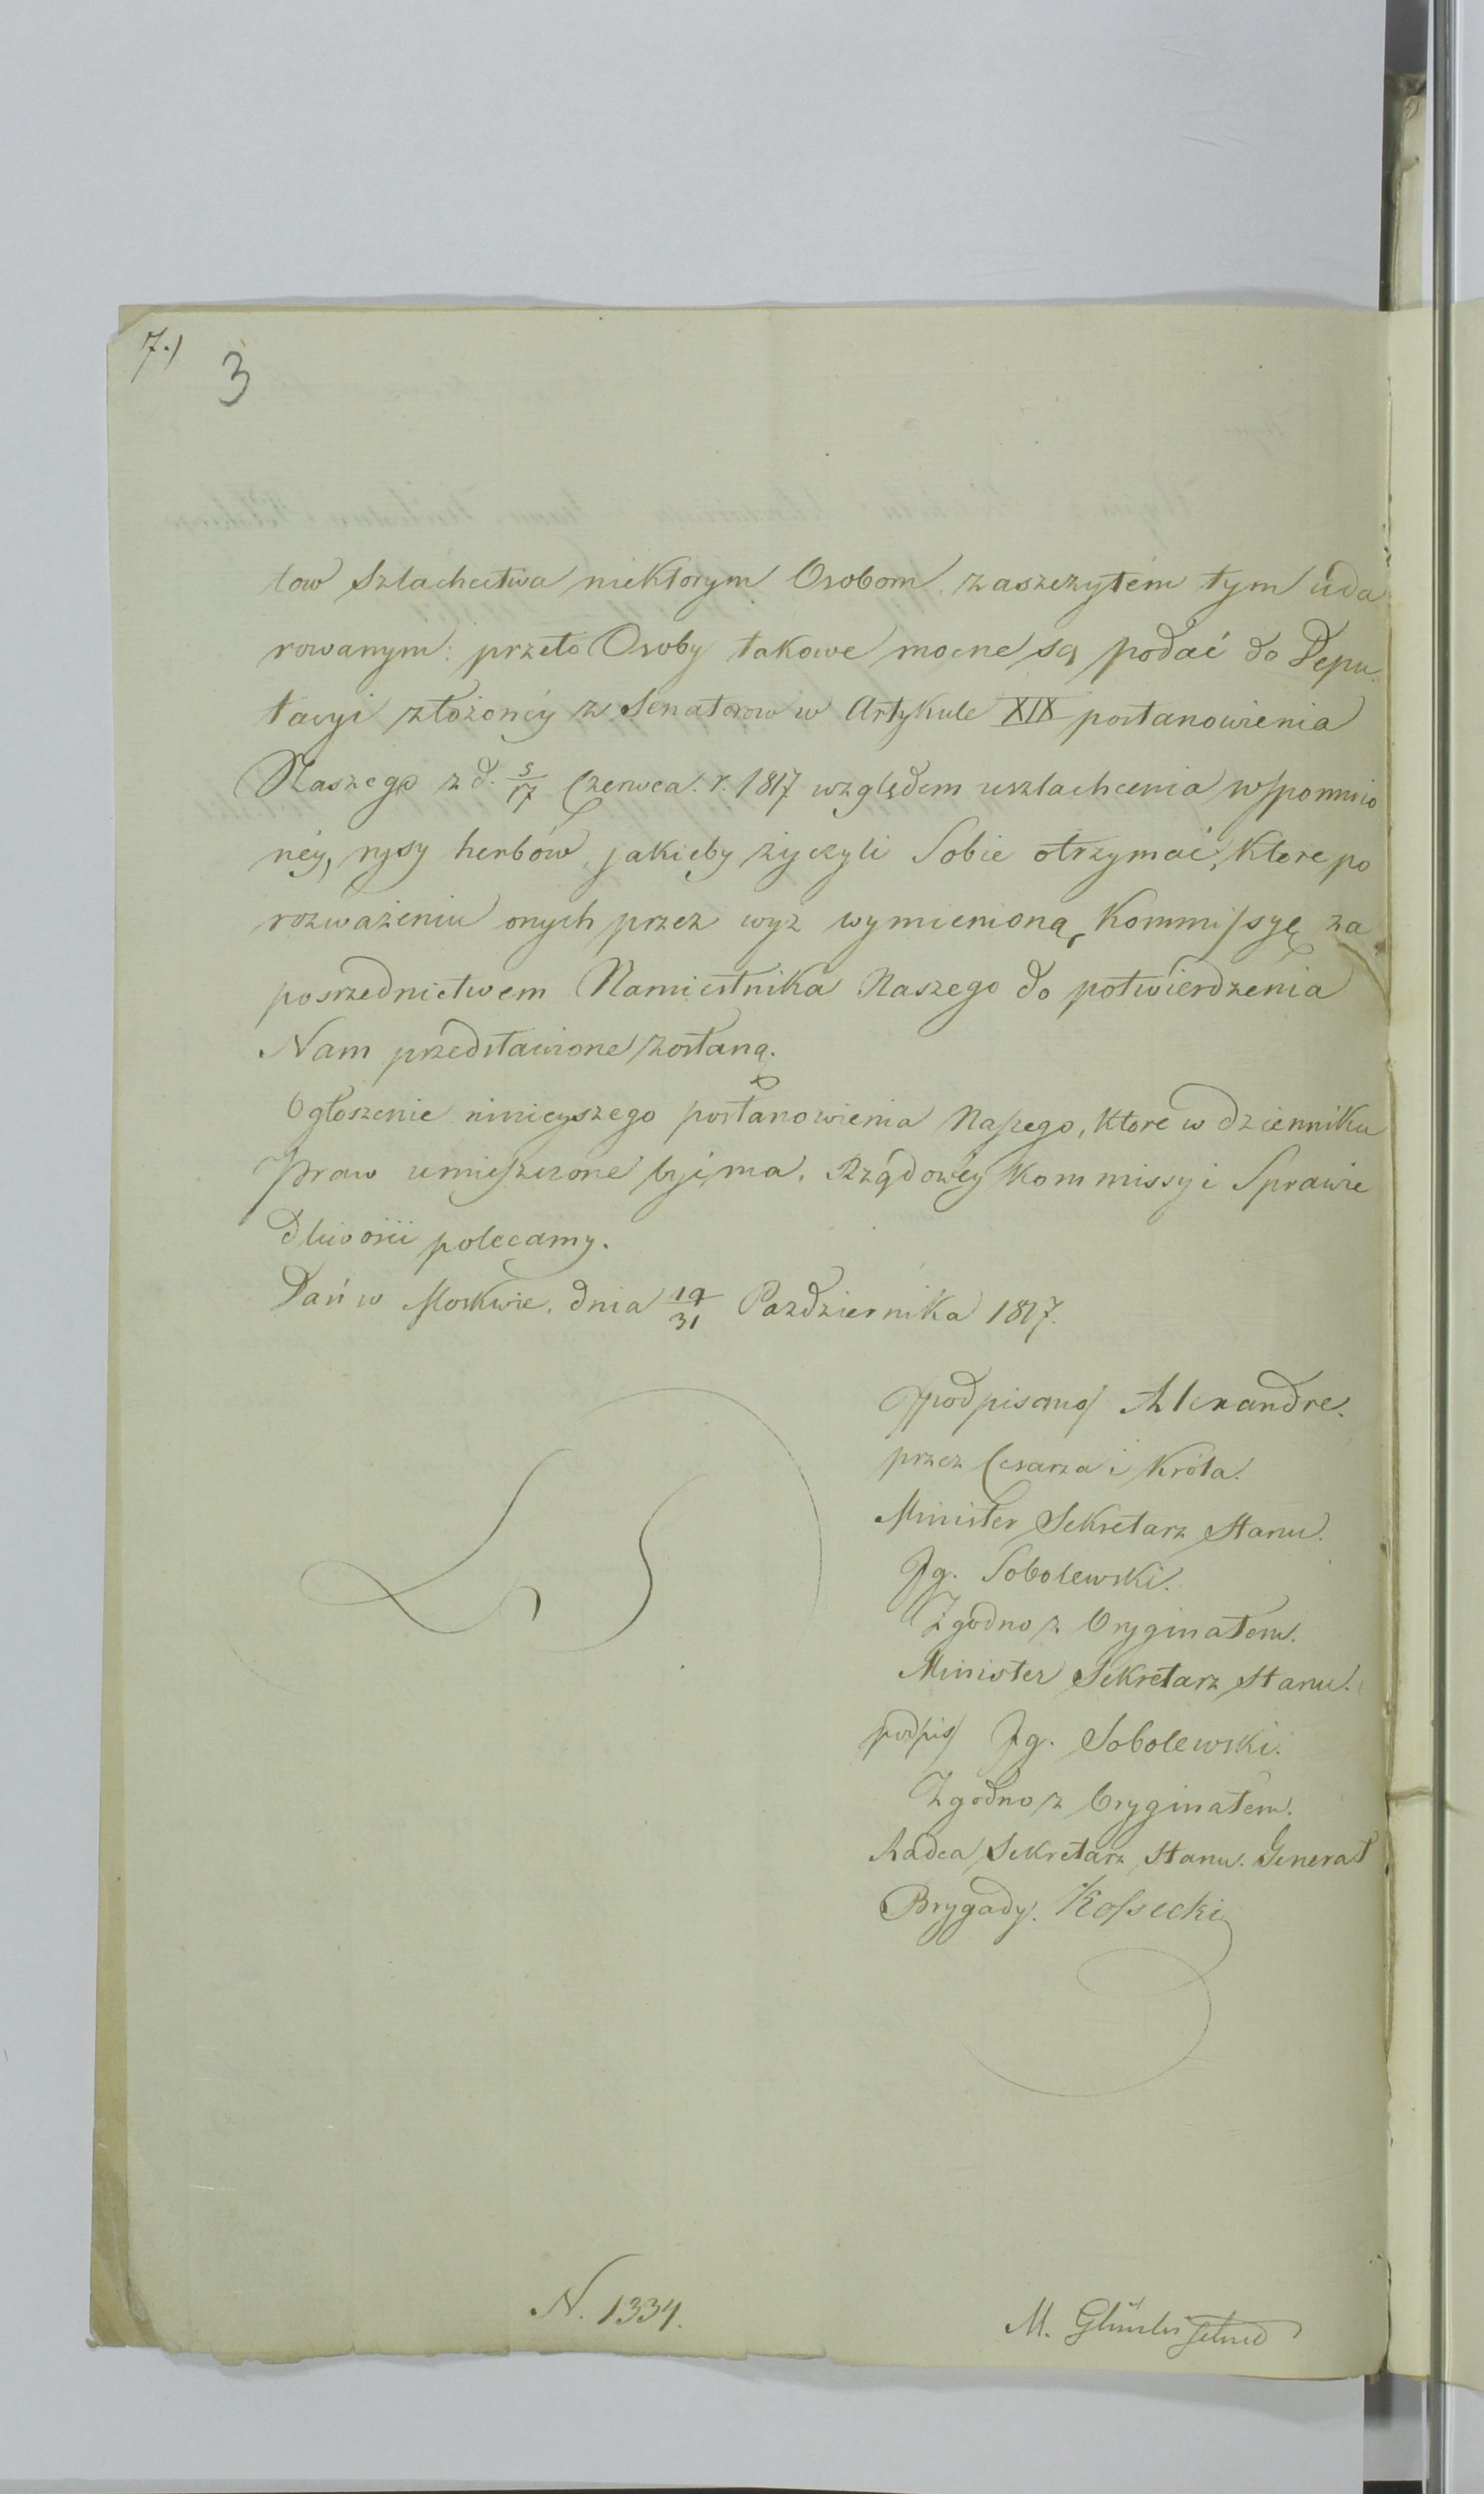 7.)
3
tow Szlachectwa niektorym Osobom, zaszczytem tym uda
rowanym: przeto Osoby takowe mocne są podać do Depu
tacyi złożonéy z Senatorow w Artykule XIX postanowienia
Naszego z d. 5/17 Czerwca. r. 1817 względem uszlachcenia wspomnio
néy, rysy herbów, jakieby życzyli Sobie otrzymać, ktore po
rozważeniu onych przez wyż wymienioną Kommissyę za
posrzednictwem Namiestnika Naszego do potwierdzenia
Nam przedstawione zostaną.
Ogłoszenie ninieyszego postanowienia Naszego, ktore w dzienniku
praw umieszczone być ma, Rządowéy Kommissyi Sprawie
dliwości polecamy.
Dań w Moskwie, dnia 19/31 Pazdziernika 1817.
podpisano) Alexandre.
przez Cesarza i Króla.
Minister Sekretarz Stanu.
Jg. Sobolewski.
Zgodno z Oryginałem.
Minister Sekretarz Stanu.
podpis) Jg. Sobolewski.
Zgodno z Oryginałem.
Radca Sekretarz Stanu. Generał
Brygady. Kossecki
L S
N. 1334.
M.